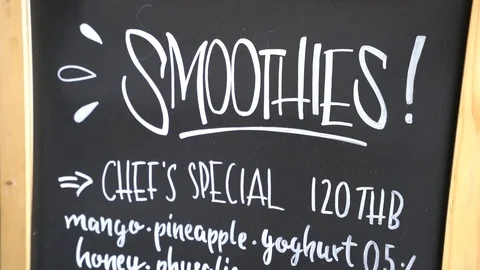 SMOOTHIES!
⇒ CHEF'S SPECIAL 120 THB
mango · pineapple · yoghurt 0,5%
honey ·